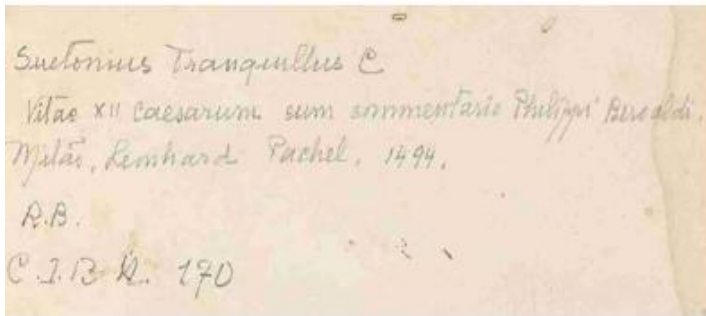 Suetonius Tranquillus C
Vitae XII Caesarum cum commentario Philippi Beroaldi.
Milās, Leonhard Pachel. 1494.
R.B.
C.I.B N. 170